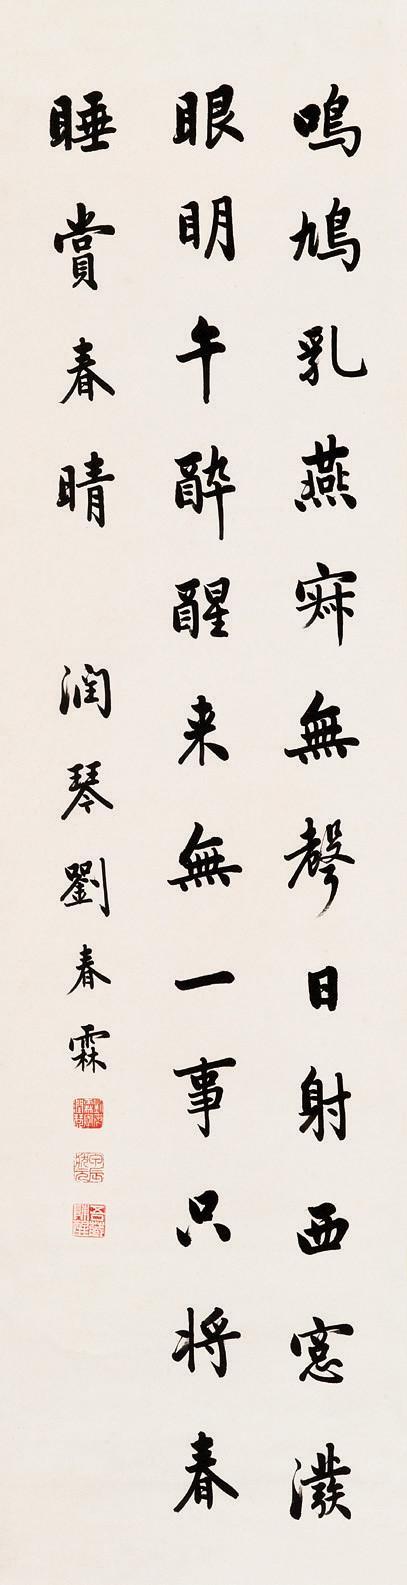 鳴鳩乳燕寂無聲日射西窻潑
眼明午醉醒来無一事只将春
睡賞春晴
潤琴劉春霖